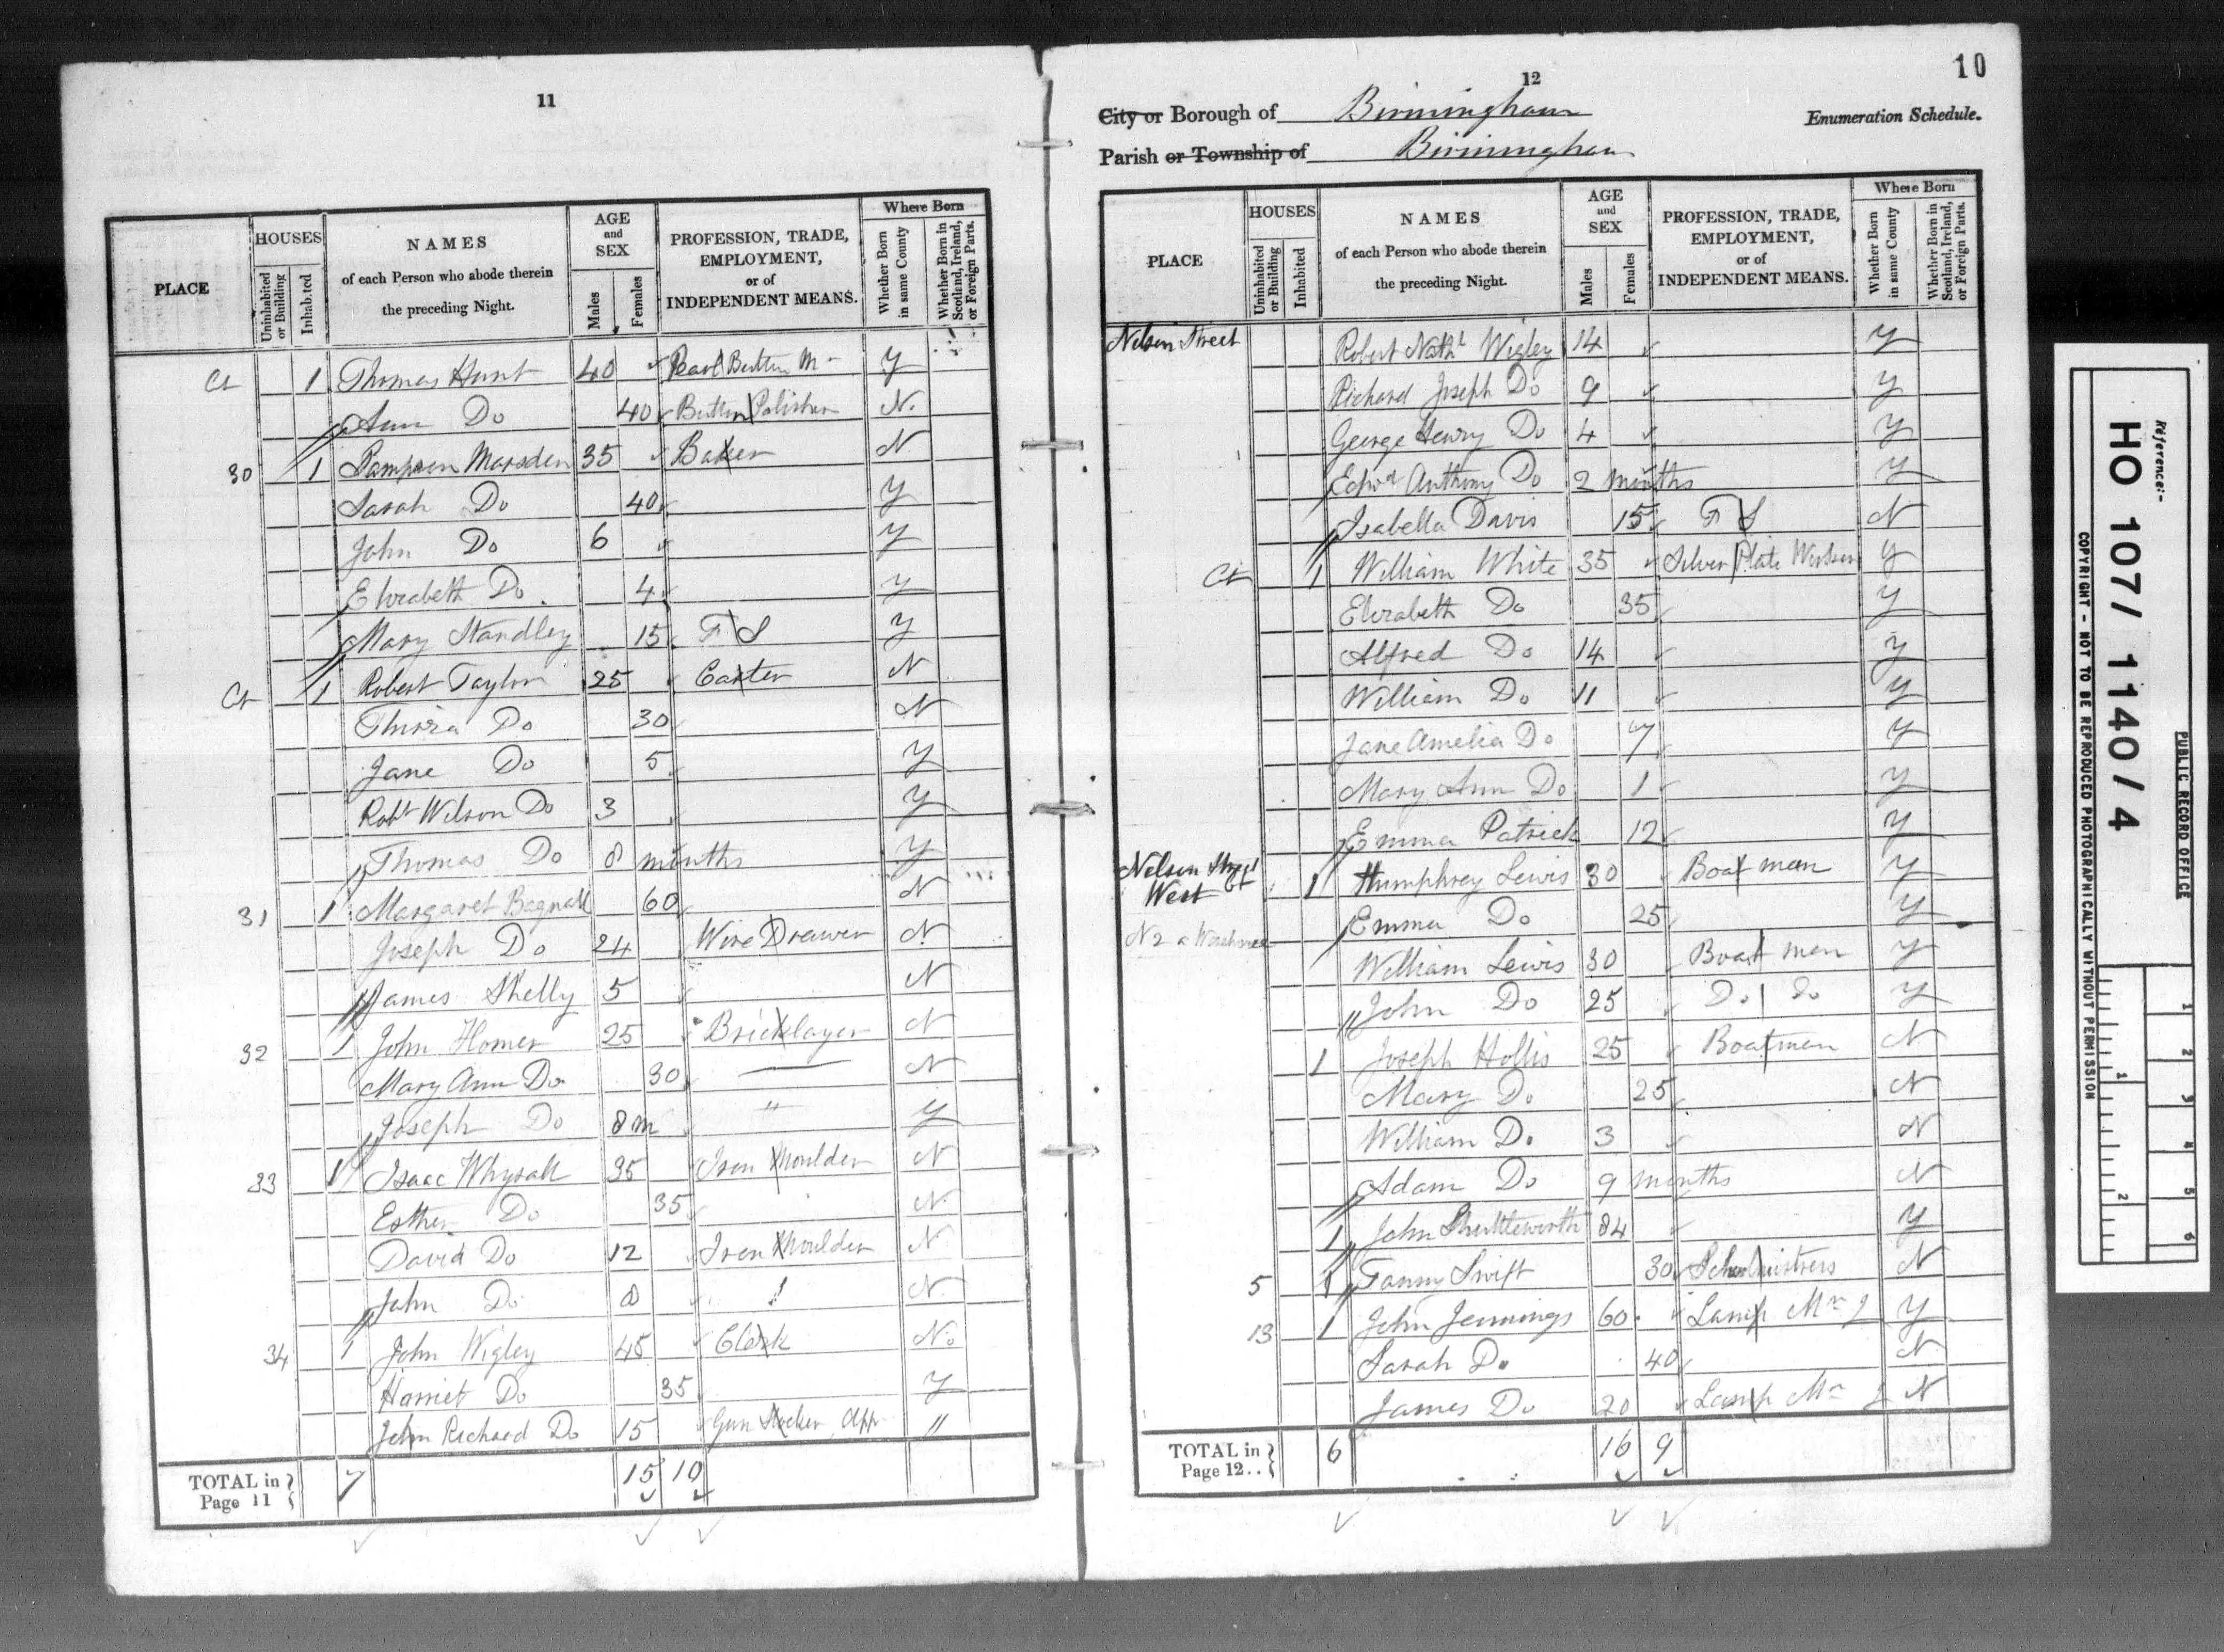 11
PLACE
HOUSES
Uninhabited or Building
Inhabited
NAMES
of each Person who abode therein
the preceding Night.
AGE
and
SEX
Males
Females
PROFESSION, TRADE,
EMPLOYMENT,
or of
INDEPENDENT MEANS.
Where Born
Whether Born in same County
Whether Born in Scotland, Ireland, or Foreign Parts.
Ct 1 Thomas Hunt 40 Pearl Button M Y
Ann Do 40 Button Polisher N.
30 1 Sampson Marsden 35 Baker N
Sarah Do 40 Y
John Do 6 Y
Elizabeth Do 4 Y
Mary Standley 15 F S Y
Ct 1 Robert Taylor 25 Carter N
Thirza Do 30 N
Jane Do 5 Y
Robt Wilson Do 3 Y
Thomas Do 8 months Y
31 1 Margaret Bagnall 60 N
Joseph Do 24 Wire Drawer N
James Shelly 5 N
32 1 John Homer 25 Bricklayer N
Mary Ann Do 30 — N
Joseph Do 8 m " Y
33 1 Isaac Whysall 35 Iron Moulder N
Esther Do 35 N
David Do 12 Iron Moulder N
John Do 8 N
34 1 John Wigley 45 Clerk No
Harriet Do 35 Y
John Richard Do 15 Gun Stocker App "
TOTAL in
Page 11 7 15 10
12
10
City or Borough of Birmingham
Enumeration Schedule.
Parish or Township of Birmingham
PLACE
HOUSES
Uninhabited or Building
Inhabited
NAMES
of each Person who abode therein
the preceding Night.
AGE
and
SEX
Males
Females
PROFESSION, TRADE,
EMPLOYMENT,
or of
INDEPENDENT MEANS.
Where Born
Whether Born in same County
Whether Born in Scotland, Ireland, or Foreign Parts.
Nelson Street Robert Nathl Wigley 14 Y
Richard Joseph Do 9 Y
George Henry Do 4 Y
Edwd Anthony Do 2 months Y
Isabella Davis 15 F S N
Ct 1 William White 35 Silver Plate Worker Y
Elizabeth Do 35 Y
Alfred Do 14 Y
William Do 11 Y
Jane Amelia Do 7 Y
Mary Ann Do 1 Y
Emma Patrick 12 Y
Nelson Street
West Ct 1 Humphrey Lewis 30 Boat man Y
Emma Do 25 Y
N 2 a
William Lewis 30 Boat man Y
John Do 25 Do Do Y
1 Joseph Hollis 25 Boatman N
Mary Do 25 N
William Do 3 N
Adam Do 9 months N
1 John Shuttleworth 84 Y
5 1 Fanny Swift 30 Schoolmistress N
13 1 John Jennings 60 Lamp Mr J Y
Sarah Do 40 N
James Do 20 Lamp Mr J N
TOTAL in
Page 12.. 6 16 9
Reference:-
HO 107/1140/4
PUBLIC RECORD OFFICE
COPYRIGHT - NOT TO BE REPRODUCED PHOTOGRAPHICALLY WITHOUT PERMISSION
1 2 3 4 5 6
1 2